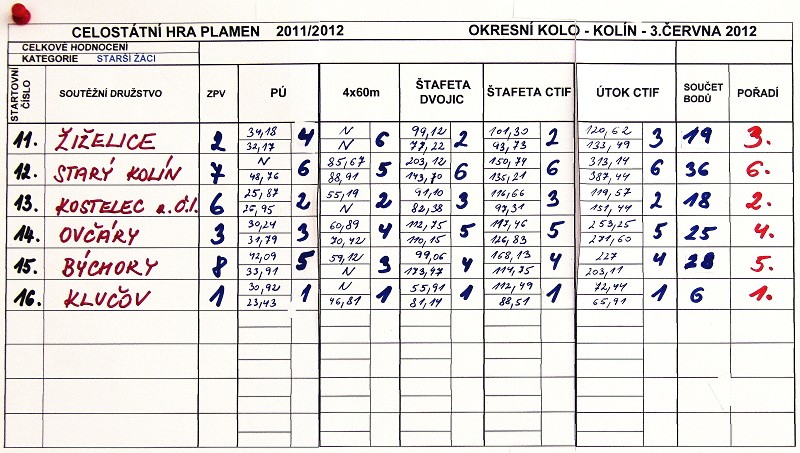 CELOSTÁTNÍ HRA PLAMEN 2011/2012 OKRESNÍ KOLO - KOLÍN - 3.ČERVNA 2012
CELKOVÉ HODNOCENÍ
KATEGORIE STARŠÍ ŽÁCI
STARTOVNÍ ČÍSLO SOUTĚŽNÍ DRUŽSTVO ZPV PÚ 4x60m ŠTAFETA DVOJIC ŠTAFETA CTIF ÚTOK CTIF SOUČET BODŮ POŘADÍ
34,18 N 99,12 101,30 120,62
11. ŽIŽELICE 2 4 6 2 2 3 19 3.
32,17 N 77,22 93,73 133,49
N 85,67 203,12 150,74 313,14
12. STARÝ KOLÍN 7 6 5 6 6 6 36 6.
48,76 88,91 143,70 135,21 387,44
25,87 55,19 91,10 116,66 119,57
13. KOSTELEC n.Č.l. 6 2 2 3 3 2 18 2.
26,95 N 82,38 97,31 151,44
30,24 60,89 112,75 117,46 253,25
14. OVČÁRY 3 3 4 5 5 5 25 4.
31,79 70,42 110,15 126,83 271,60
42,09 59,12 99,06 168,13 227
15. BÝCHORY 8 5 3 4 4 4 28 5.
33,91 N 173,97 114,75 203,11
30,92 N 55,91 112,49 72,44
16. KLUČOV 1 1 1 1 1 1 6 1.
23,43 46,81 81,14 88,51 65,91